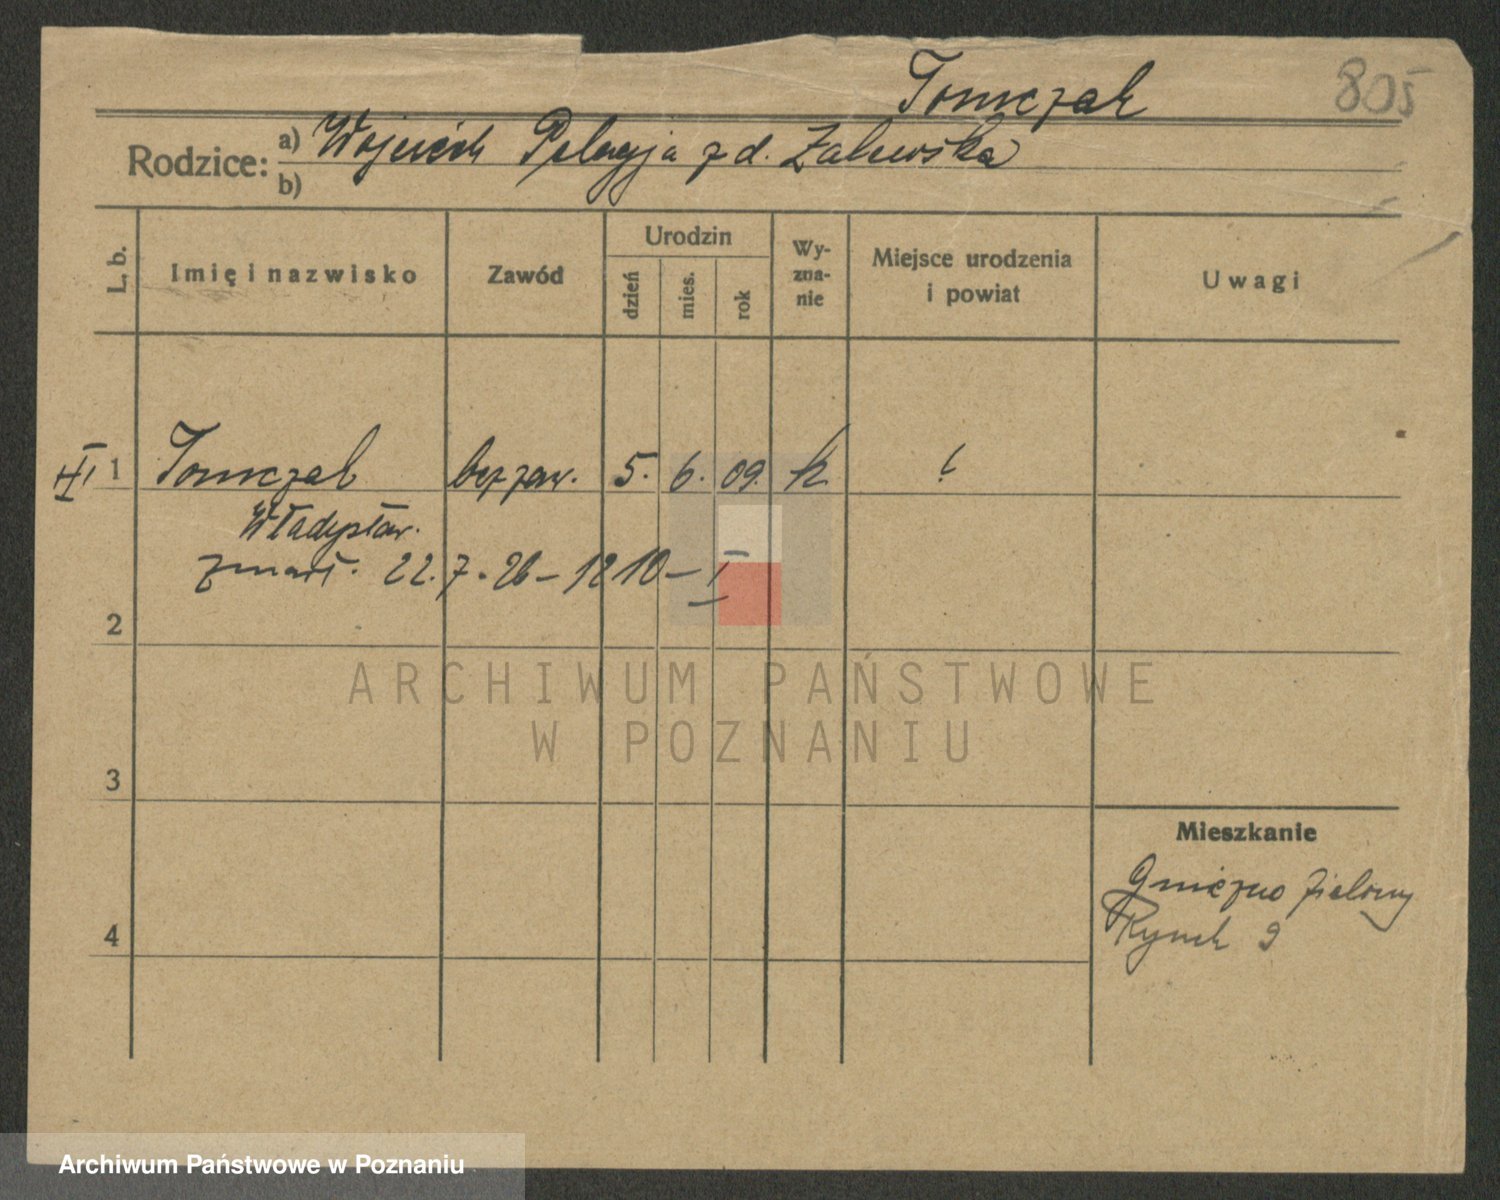 Tomczak 805
Rodzice: a) Wojciech Pelagja z d. Zalewska
b)
L. b. Imię i nazwisko Zawód Urodzin dzień mies. rok Wy-zna-nie Miejsce urodzenia i powiat Uwagi
1 Tomczak bez zaw. 5. 6. 09. k
Władysław.
zmarł. 22.7.26 – 1210 – I
2
ARCHIWUM PAŃSTWOWE
W POZNANIU
3
Mieszkanie
Gniezno Zielony
4
Rynek 9
Archiwum Państwowe w Poznaniu